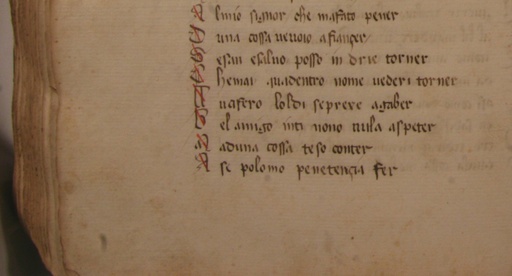 lmio signor che mafato pener
una cossa vevoio afiançer
esan esalvo posso in drie torner
hemai quadentro nome vederi torner
vafero loldi sepreve agaber
el amigo inti nono tuila aspeter
aduna cossa teso conter
se polomo penetençia fer